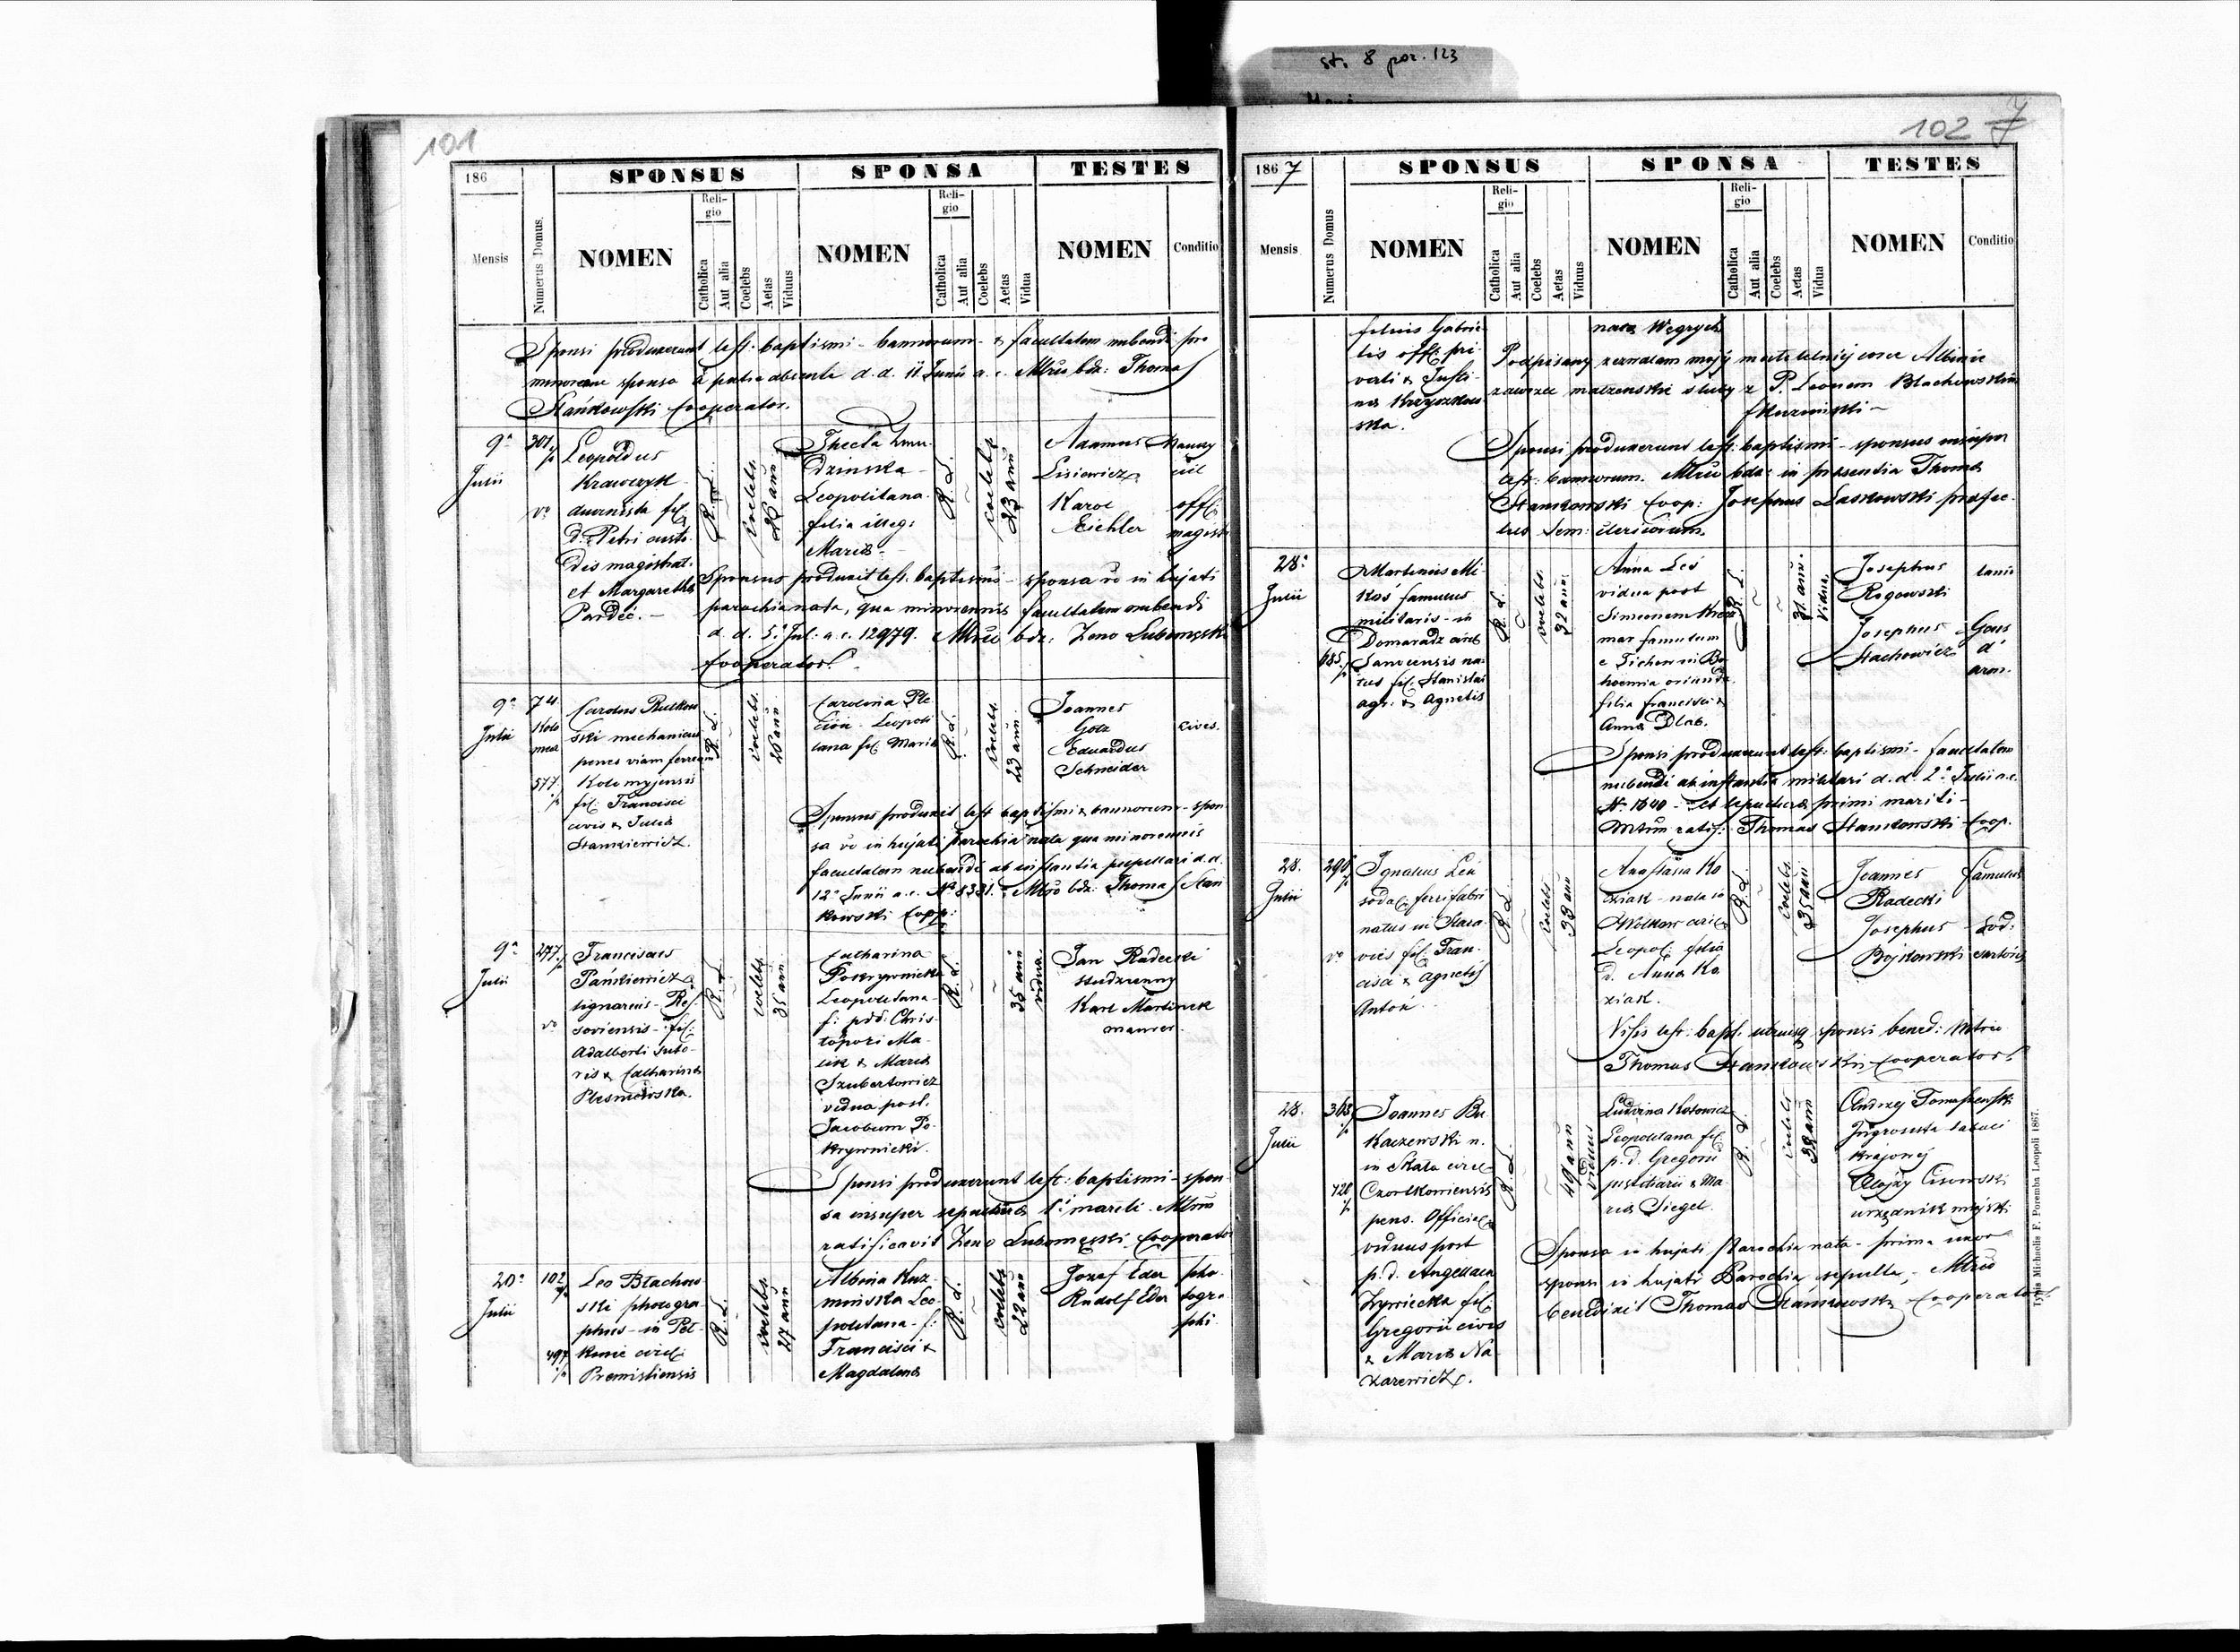 st. 8 poz. 123
101
186
SPONSUS
SPONSA
TESTES
Mensis
Numerus Domus.
NOMEN
Religio
Catholica
Aut alia
Coelebs
Aetas
Viduus
NOMEN
Religio
Catholica
Aut alia
Coelebs
Aetas
Vidua
NOMEN
Conditio
Sponsi produxerunt test. baptismi - bannorum - & facultatem nubendi pro
minorene sponsa a patre absente d.d. 11 Junii a. c. Mtriu bdx: Thomas
Stańkowski Cooperator.
9ª
Julii
301
Leopoldus
Krawczyk
diurnista fil
d. Petri custo
dis magistrat.
et Margaretha
Pardéć. -
R. L.
Coelebs.
26 ann
Thecla
dzinska
Leopolitana
filia illeg:
Maria -
R. L.
Coelebs
23 ann
Adamus
Lisiewicz
Karol
Eichler
offi
magistr
Sponsus produxit test. baptismi - sponsa vo in hujati
parochia nata, qua minorennis facultatem nubendi
d. d. 5. Jul: a. c. 12979. Mtriu bdx: Zeno Lubomęski
Cooperator.
9ª
Julii
74.
Kolo
mea
577
Carolus Rutkow
ski mechanicus
penes viam ferream
Kolomyjensis
fil: Francisci
civis & Julia
Stankiewicz.
R. L.
Coelebs.
26 ann
Carolina Ple
cion Leopoli
tana fil Maria
R. L.
Coelebs.
23 ann
Joannes
Gotz
Eduardus
Schneider
cives.
Sponsus produxit test baptismi & bannorum - spon
sa vo in hujati parochia nata qua minorennis
facultatem nubendi ab instantia pupillari d. d.
12ª Junii a.c. Nº 8331. Mtriu bdx. Thomas Stań
kowski Coop:
9ª
Julii
277
Franciscus
Pańkiewicz
lignarius - Res
soviensis - fil:
Adalberti suto-
ris & Catharina
Plesniórska.
R. L.
Coelebs.
35 ann
Catharina
Pokrywnicka
Leopolitana
f: pdd: Chris
tophori Ma
lik & Maria
Szubertowicz
vidua post.
Jacobum Po
krywnicki.
R. L.
35 ann
vidua.
Jan Radecki
studzienny
Karl Martinek
maurer.
Sponsi produxerunt test: baptismi - spon-
sa insuper sepultura 1i mariti. Mtriu
ratificavit Zeno Lubomęski Cooperator
20ª
Julii
102
497
Leo Blachow
ski photogra
phus - in Pet
konie circl:
Premisliensis
R. L.
Coelebs.
27 ann
Albina Kuz
mińska Leo
politana - f:
Francisci &
Magdalena
R. L.
Coelebs
22 ann
Jozef Eder
Rudolf Eder
pho
togra
phi
102
7
1867
SPONSUS
SPONSA
TESTES
Mensis
Numerus Domus
NOMEN
Religio
Catholica
Aut alia
Coelebs
Aetas
Viduus
NOMEN
Religio
Catholica
Aut alia
Coelebs
Aetas
Vidua
NOMEN
Conditio
filius Gabrie
lis offi: pri
vati & Justi-
na Krzyszkow
ska.
nata Węgrych
Podpisany zezwalam mojej małoletniej córce Albinie
zawrzeć małżeńskie śluby z P. Leonem Blachowskim
fKuzminski -
Sponsi produxerunt test: baptismi - sponsus insuper
test: bannorum. Mtriu bdx: in praesentia Thoma
Stankowski Coop: Josephus Laskowski praefec-
tus Sem: clericorum.
28ª
Julii
685
Martinus Mi-
koś famulus
militaris - in
Domaradz circ
Sanocensis na
tus fil. Stanislai
agr. & Agnetis
R. L.
Coelebs.
32 ann.
Anna Leś
vidua post
Simeonem
mar famulum
e Tichow in Bo
hoemia oriunda
filia Francisci &
Anna Dlab.
R. L.
31 ann.
Vidua.
Josephus
Rogowski
Josephus
Stachowicz
lanio
Gaus
d'
arm.
Sponsi produxerunt test: baptismi - facultatem
nubendi ab instantia militari d.d. 2ª Julii a.c.
Nº 1640 - et sepultura primi mariti -
Mtrium ratif: Thomas Stankowski Coop.
28.
Julii
290
Ignatius Len
sodal ferrifabri
natus in Stara
wieś fil. Fran.
cisci & Agnetis
Antoń.
R. L.
Coelebs
33 ann
Anastasia Ko
ziak - nata in
Wolkow circl
Leopol: filia
d. Anna Ko
ziak.
R. L.
Coelebs
35 ann
Joannes
Radecki
Josephus
Bojkowski
famulus
Sod:
sartoris
Visis test: bapt. utriusq sponsi bened: Mtriu
Thomas Stankowski Cooperator
28.
Julii
363
428
Joannes Bu
kaczewski n.
in Skała circl
Czortkowiensis
pens. Official
viduus post
p. d. Angellam
Zywiecka fil
Gregorii civis
& Maria Na
zarewicz.
R. L.
49 ann
viduus
Ludvina Kotowicz
Leopolitana fil
p. d. Gregorii
justitiarii & Ma
ria Siegel.
R. L.
Coelebs
38 ann
Andrzej Tomaszewski
Ingrosista tabuli
krajowej
Alojzy Cisowski
urzędnik miejski
Sponsa in hujati Parochia nata - prima uxor
sponsi in hujati Parochia sepulta, Mtriu
benedixit Thomas Stankowski Cooperator.
Typis Michaelis F. Poremba Leopoli 1867.